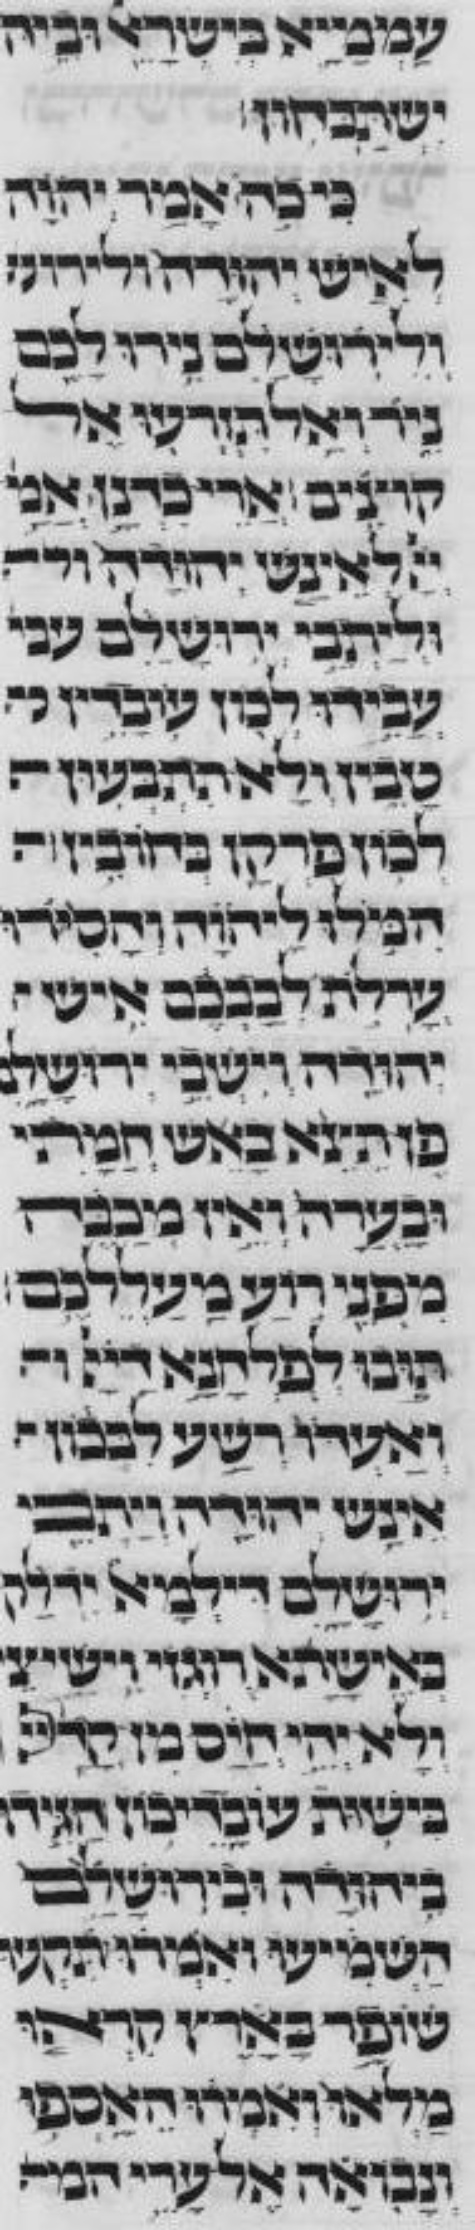 עַמְמַיָא בְיִשְרָאֵל וּבֵיה
יִשְתַּבְחוּן׃
כִּי כֹה אָמַר יְהוָה
לְאִישׁ יְהוּדָה ולירוש
וְלִירוּשָׁלִַם נִירוּ לָכֶם
נִיר וְאַל תִּזְרְעוּ אֶל
קוֹצִים׃ אֲרֵי כִדְנַן אֲמַ
יְיָ לֶאֱינָשׁ יְהוּדָה ולית
וּלְיָתְבֵי יְרוּשְׁלֵם עבי
עֲבִידוּ לְכוֹן עוֹבָדִין
טָבִין וְלָא תִתְבְּעוּן ה
לְכוֹן פֻּרְקָן בְּחוֹבִין׃ ה
הִמֹּלוּ לַיהוָה וְהָסִירוּ
עָרְלֹת לְבַבְכֶם אִישׁ י
יְהוּדָה וְיֹשְׁבֵי יְרוּשָׁלִָם
פֶּן תֵּצֵא כָאֵשׁ חֲמָתִי
וּבָעֲרָה וְאֵין מְכַבֶּה
מִפְּנֵי רֹועַ מַעַלְלֵיכֶם׃
תּוּבוּ לְפֻלְחָנָא דַייָ וה
וְאַעְדּוֹ רְשַׁע לִבְּכוֹן י
אֱינָשׁ יְהוּדָה וְיָתְבֵי
יְרוּשְׁלֵם דִּילְמָא יִדְלַק
כְּאִישָׁתָא רוּגְזִי וִישֵׁיצֵי
וְלָא יְהֵי חַיִס מִן קֳדָם
בִּישׁוּת עוֹבָדֵיכוֹן׃ הַגִּידוּ
בִיהוּדָה וּבִירוּשָׁלִַם
הַשְׁמִיעוּ וְאִמְרוּ תִּקְעוּ
שׁוֹפָר בָּאָרֶץ קִרְאוּ
מַלְאוּ וְאִמְרוּ הֵאָסְפוּ
וְנָבוֹאָה אֶל עָרֵי המ